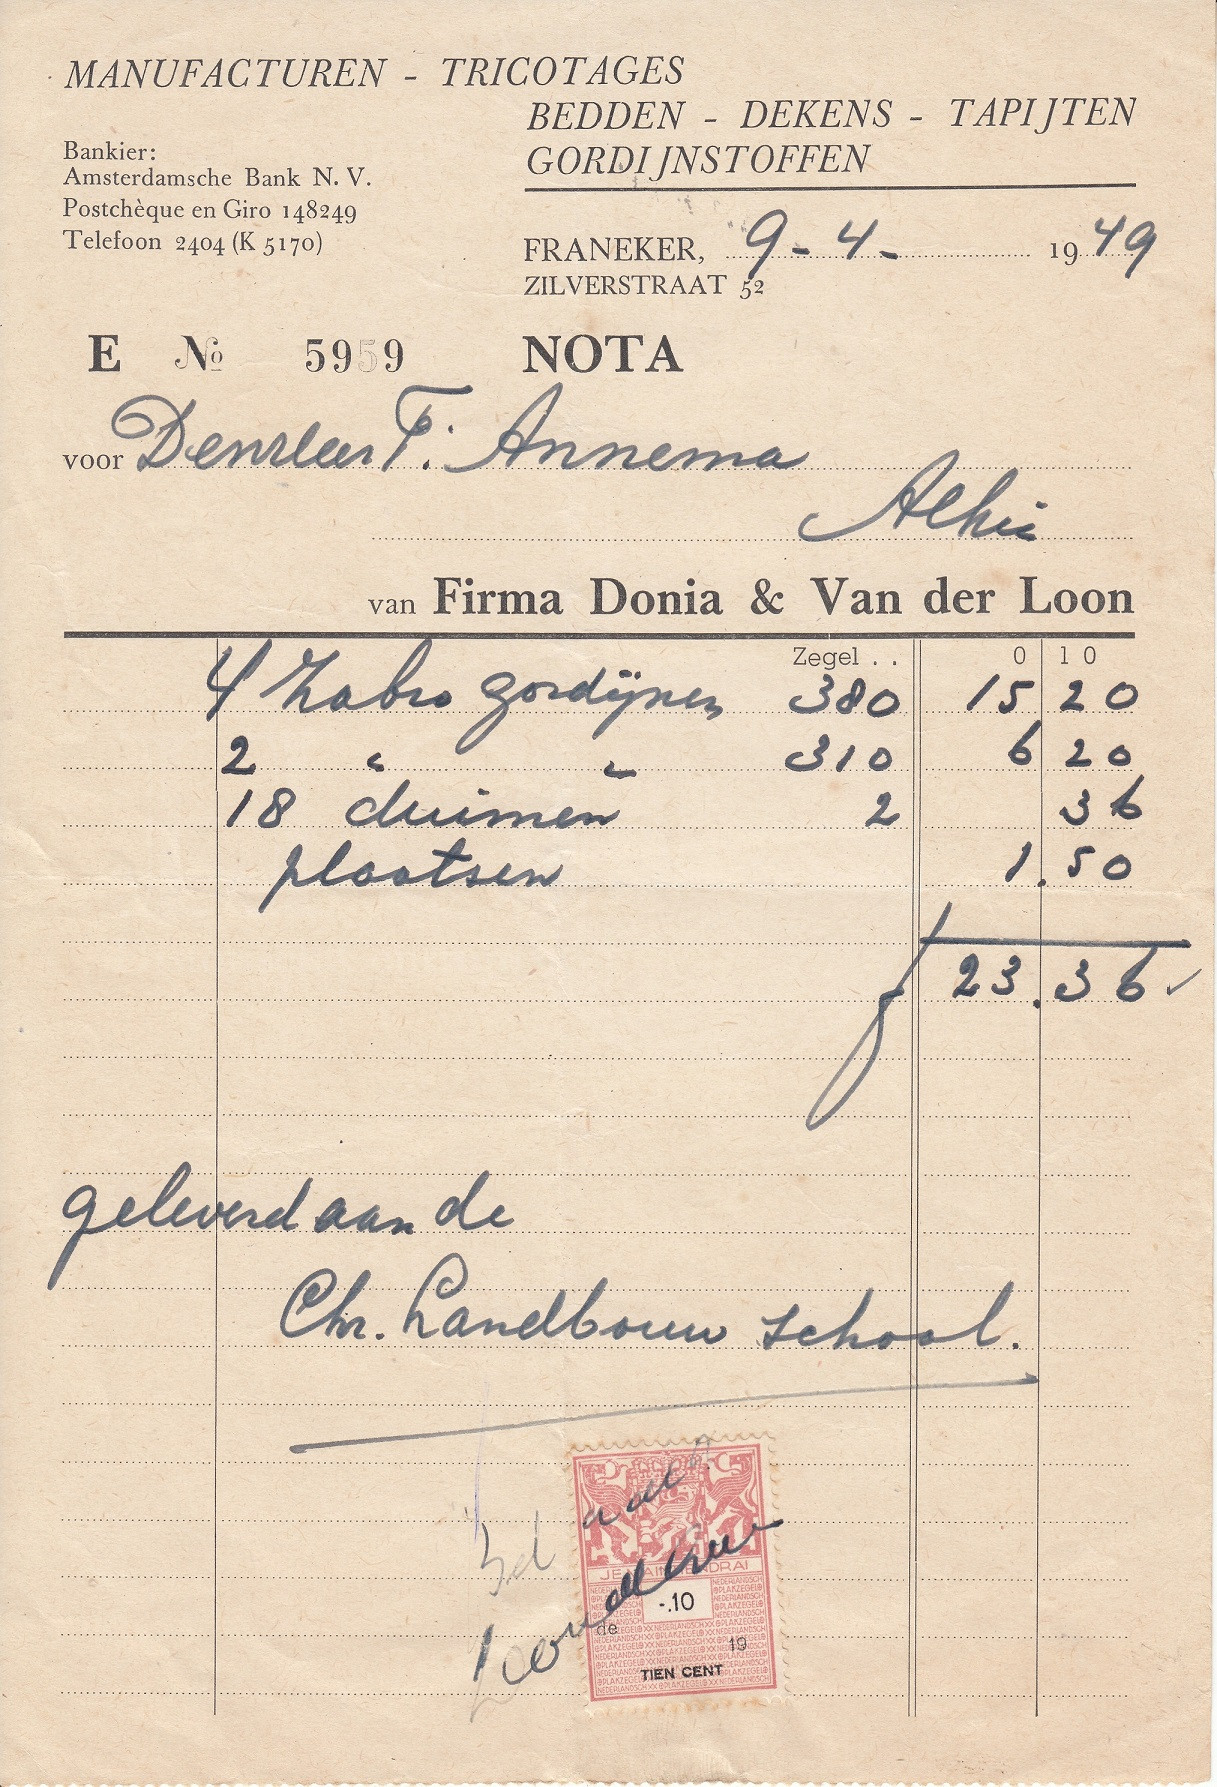 MANUFACTUREN - TRICOTAGES
BEDDEN - DEKENS - TAPIJTEN
GORDIJNSTOFFEN
Bankier:
Amsterdamsche Bank N. V.
Postchèque en Giro 148249
Telefoon 2404 (K 5170)
FRANEKER, 9-4- 1949
ZILVERSTRAAT 52
E № 5959 NOTA
voor F. Annema
Alhier
van Firma Donia & Van der Loon
Zegel . . 0 10
4 gordijnen 380 15 20
2 " " 310 6 20
18 duimen 2 36
plaatsen 1.50
f 23.36
geleverd aan de
Chr. Landbouw school.
JE MAINTIENDRAI
-.10
de 19
TIEN CENT